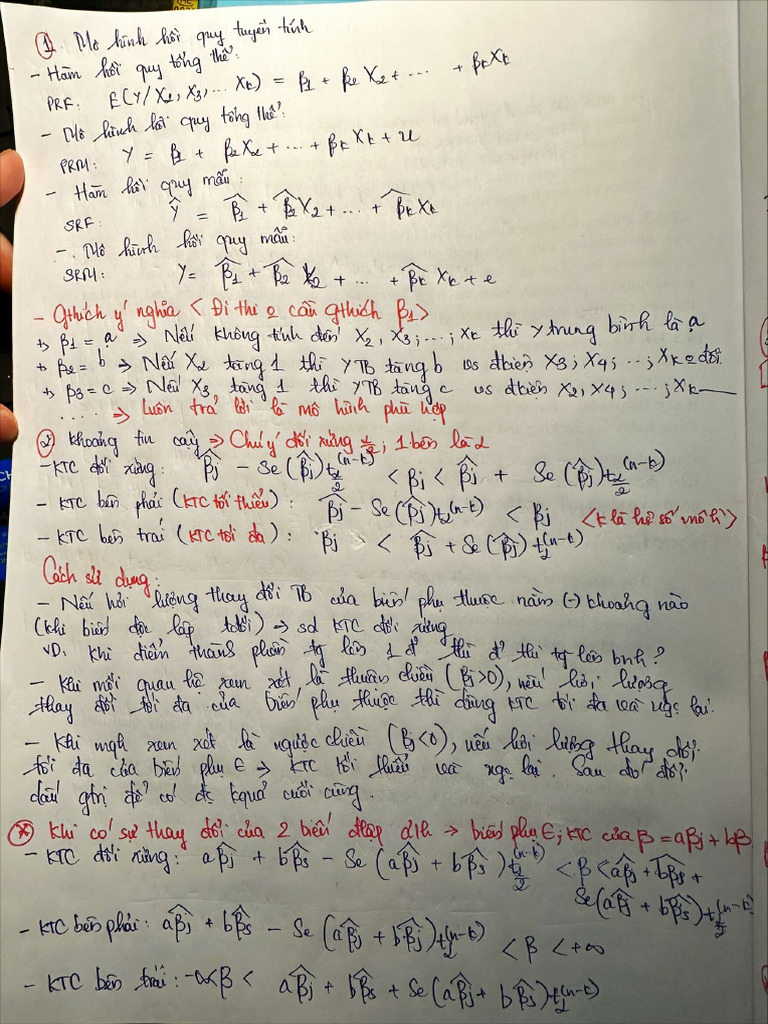 ① Mô hình hồi quy tuyến tính
- Hàm hồi quy tổng thể:
PRF: E(Y/X₂, X₃, ... Xₖ) = β₁ + β₂X₂ + ... + βₖXₖ
- Mô hình hồi quy tổng thể:
PRM: Y = β₁ + β₂X₂ + ... + βₖXₖ + u
- Hàm hồi quy mẫu:
SRF: Ŷ = β̂₁ + β̂₂X₂ + ... + β̂ₖXₖ
- Mô hình hồi quy mẫu:
SRM: Y = β̂₁ + β̂₂X₂ + ... + β̂ₖXₖ + e
- Gthích ý nghĩa < Đi thi o cần gthích β₁>
+, β₁ = a => Nếu không tính đến X₂, X₃; ...; Xₖ thì Y trung bình là a
+, β₂ = b => Nếu X₂ tăng 1 thì YTB tăng b vs đkiện X₃; X₄; ...; Xₖ o đổi
+, β₃ = c => Nếu X₃ tăng 1 thì YTB tăng c vs đkiện X₂, X₄; ...; Xₖ —
.... => Luôn trả lời là mô hình phù hợp
② Khoảng tin cậy => Chú ý đối xứng α/2; 1 bên là α
- KTC đối xứng: β̂ⱼ - Se(β̂ⱼ)t_{α/2}^{(n-k)} < βⱼ < β̂ⱼ + Se(β̂ⱼ)t_{α/2}^{(n-k)}
- KTC bên phải (KTC tối thiểu): β̂ⱼ - Se(β̂ⱼ)t_α^{(n-k)} < βⱼ <k là hệ số mô hì>
- KTC bên trái (KTC tối đa): βⱼ < β̂ⱼ + Se(β̂ⱼ)t_α^{(n-k)}
Cách sử dụng:
- Nếu hỏi lượng thay đổi TB của biến phụ thuộc nằm (-) khoảng nào
(khi biến độc lập tđổi) → sd KTC đối xứng
VD: Khi điểm thành phần tg lên 1 đ thì đ thi tg lên bnh?
- Khi mối quan hệ xem xét là thuận chiều (βⱼ>0), nếu hỏi lượng
thay đổi tối đa của biến phụ thuộc thì dùng KTC tối đa và ngc lại.
- Khi mqh xem xét là ngược chiều (βⱼ<0), nếu hỏi lượng thay đổi
tối đa của biến phụ ∈ → KTC tối thiểu và ngc lại. Sau đó đổi
dấu gtrị để có đc kquả cuối cùng.
(*) Khi có sự thay đổi của 2 biến đlập → biến phụ ∈; KTC của β = aβⱼ + bβ
- KTC đối xứng: aβ̂ⱼ + bβ̂ₛ - Se(aβ̂ⱼ + bβ̂ₛ)t_{α/2}^{(n-k)} < β < aβ̂ⱼ + bβ̂ₛ +
Se(aβ̂ⱼ + bβ̂ₛ)t_{α/2}^{(n-k)}
- KTC bên phải: aβ̂ⱼ + bβ̂ₛ - Se(aβ̂ⱼ + bβ̂ₛ)t_α^{(n-k)} < β < +∞
- KTC bên trái: -∞ < β < aβ̂ⱼ + bβ̂ₛ + Se(aβ̂ⱼ + bβ̂ₛ)t_α^{(n-k)}